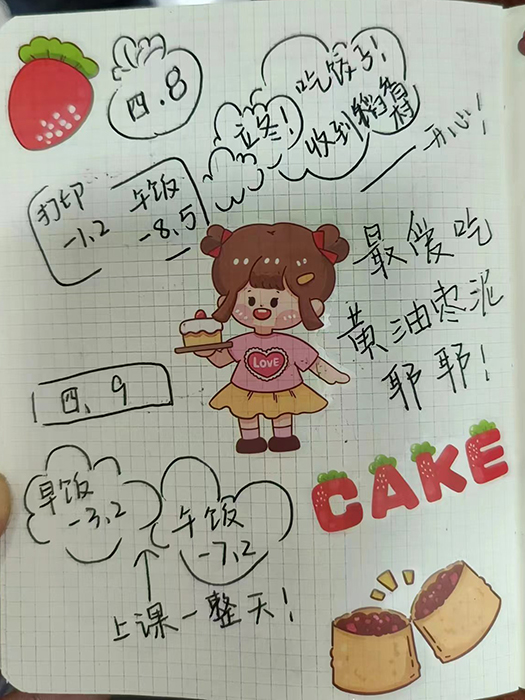 四.8
吃饭了!
立冬!
收到稻香村
开心!
打印 午饭
-1.2 -8.5
最爱吃
黄油枣泥
耶耶!
LOVE
四、9
CAKE
早饭
-3.2
午饭
-7.2
上课一整天!